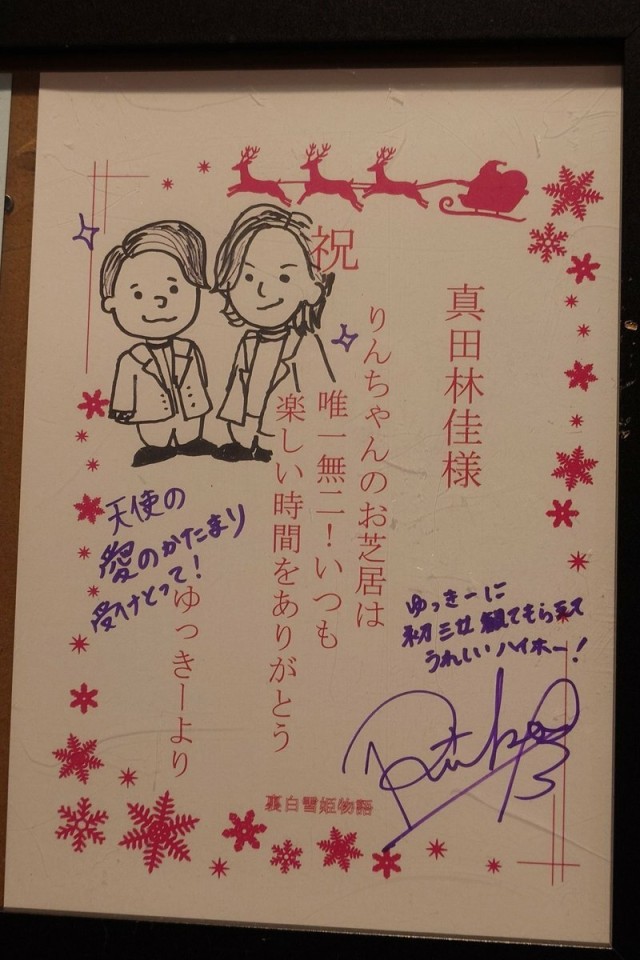 祝
真田林佳様
りんちゃんのお芝居は
唯一無二！いつも
楽しい時間をありがとう
ゆっきーより
天使の
愛のかたまり
受けとって！
ゆっきーに
初三女観てもらえて
うれしいハイホー！
裏白雪姫物語